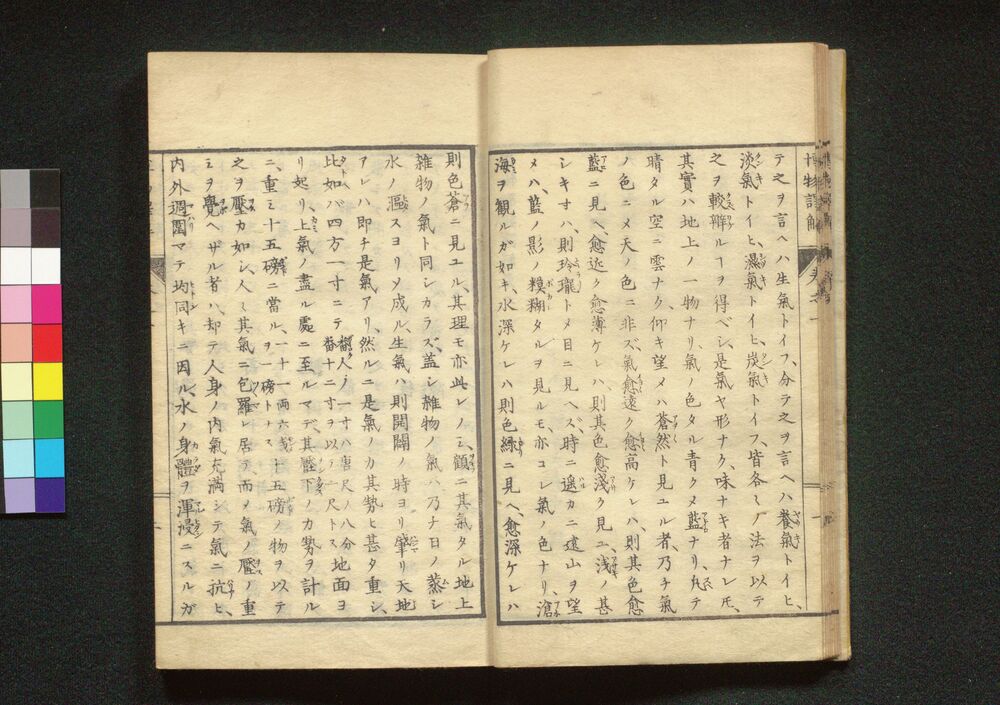 テ之ヲ言ヘハ生氣トイフ、分テ之ヲ言ヘハ養氣トイヒ、
淡氣トイヒ、濕氣トイヒ、炭氣トイフ、皆各〻ノ法ヲ以テ
之ヲ較辯ルヿヲ得ベシ、是氣ヤ形ナク、味ナキ者ナレ𪜈、
其實ハ地上ノ一物ナリ、氣ノ色タル青クメ藍ナリ、凡テ
晴タル空ニ雲ナク、仰キ望メハ蒼然ト見ユル者、乃チ氣
ノ色ニメ天ノ色ニ非ズ、氣愈遠ク愈高ケレハ、則其色愈
藍ニ見ヘ、愈近ク愈薄ケレハ、則其色愈淺ク見ユ、淺ノ甚
シキハ、則玲瓏トメ目ニ見ヘズ、時ニ遥カニ遠山ヲ望
メハ、藍ノ影ノ糢糊タルヲ見ルモ、亦コレ氣ノ色ナリ、滄
海ヲ観ルガ如キ、水深ケレハ則色綠ニ見ヘ、愈深ケレハ
則色蒼ニ見ユル、其理モ亦此レノミ、顧ニ其氣タル地上
雑物ノ氣ト同シカラズ、蓋シ雑物ノ氣ハ乃チ日ノ蒸シ
水ノ漚スヨリメ成ル、生氣ハ則開闢ノ時ヨリ肇リ天地
アレハ即チ是氣アリ、然ルニ是氣ノ力其勢ヒ甚タ重シ、
比如バ四方一寸ニテ 番人ノ一寸ハ唐尺ノ八分 番十二寸ヲ以テ一尺トス 地面ヨ
リ起リ、上氣ノ盡ル處ニ至ルマデ、其壓下ノ力勢ヲ計ル
ニ、重ミ十五磅ニ當ル、一十一両六戔ヲ一磅トナス 十五磅ノ物ヲ以テ
之ヲ壓カ如シ、人〻其氣ニ包羅レ居テ、而メ氣ノ壓ノ重
ミヲ覺ヘザル者ハ、却テ人身ノ内氣充満シテ氣ニ抗ヒ、
内外週圍マテ均同キニ因ル、水ノ身體ヲ渾浸ニスルガ